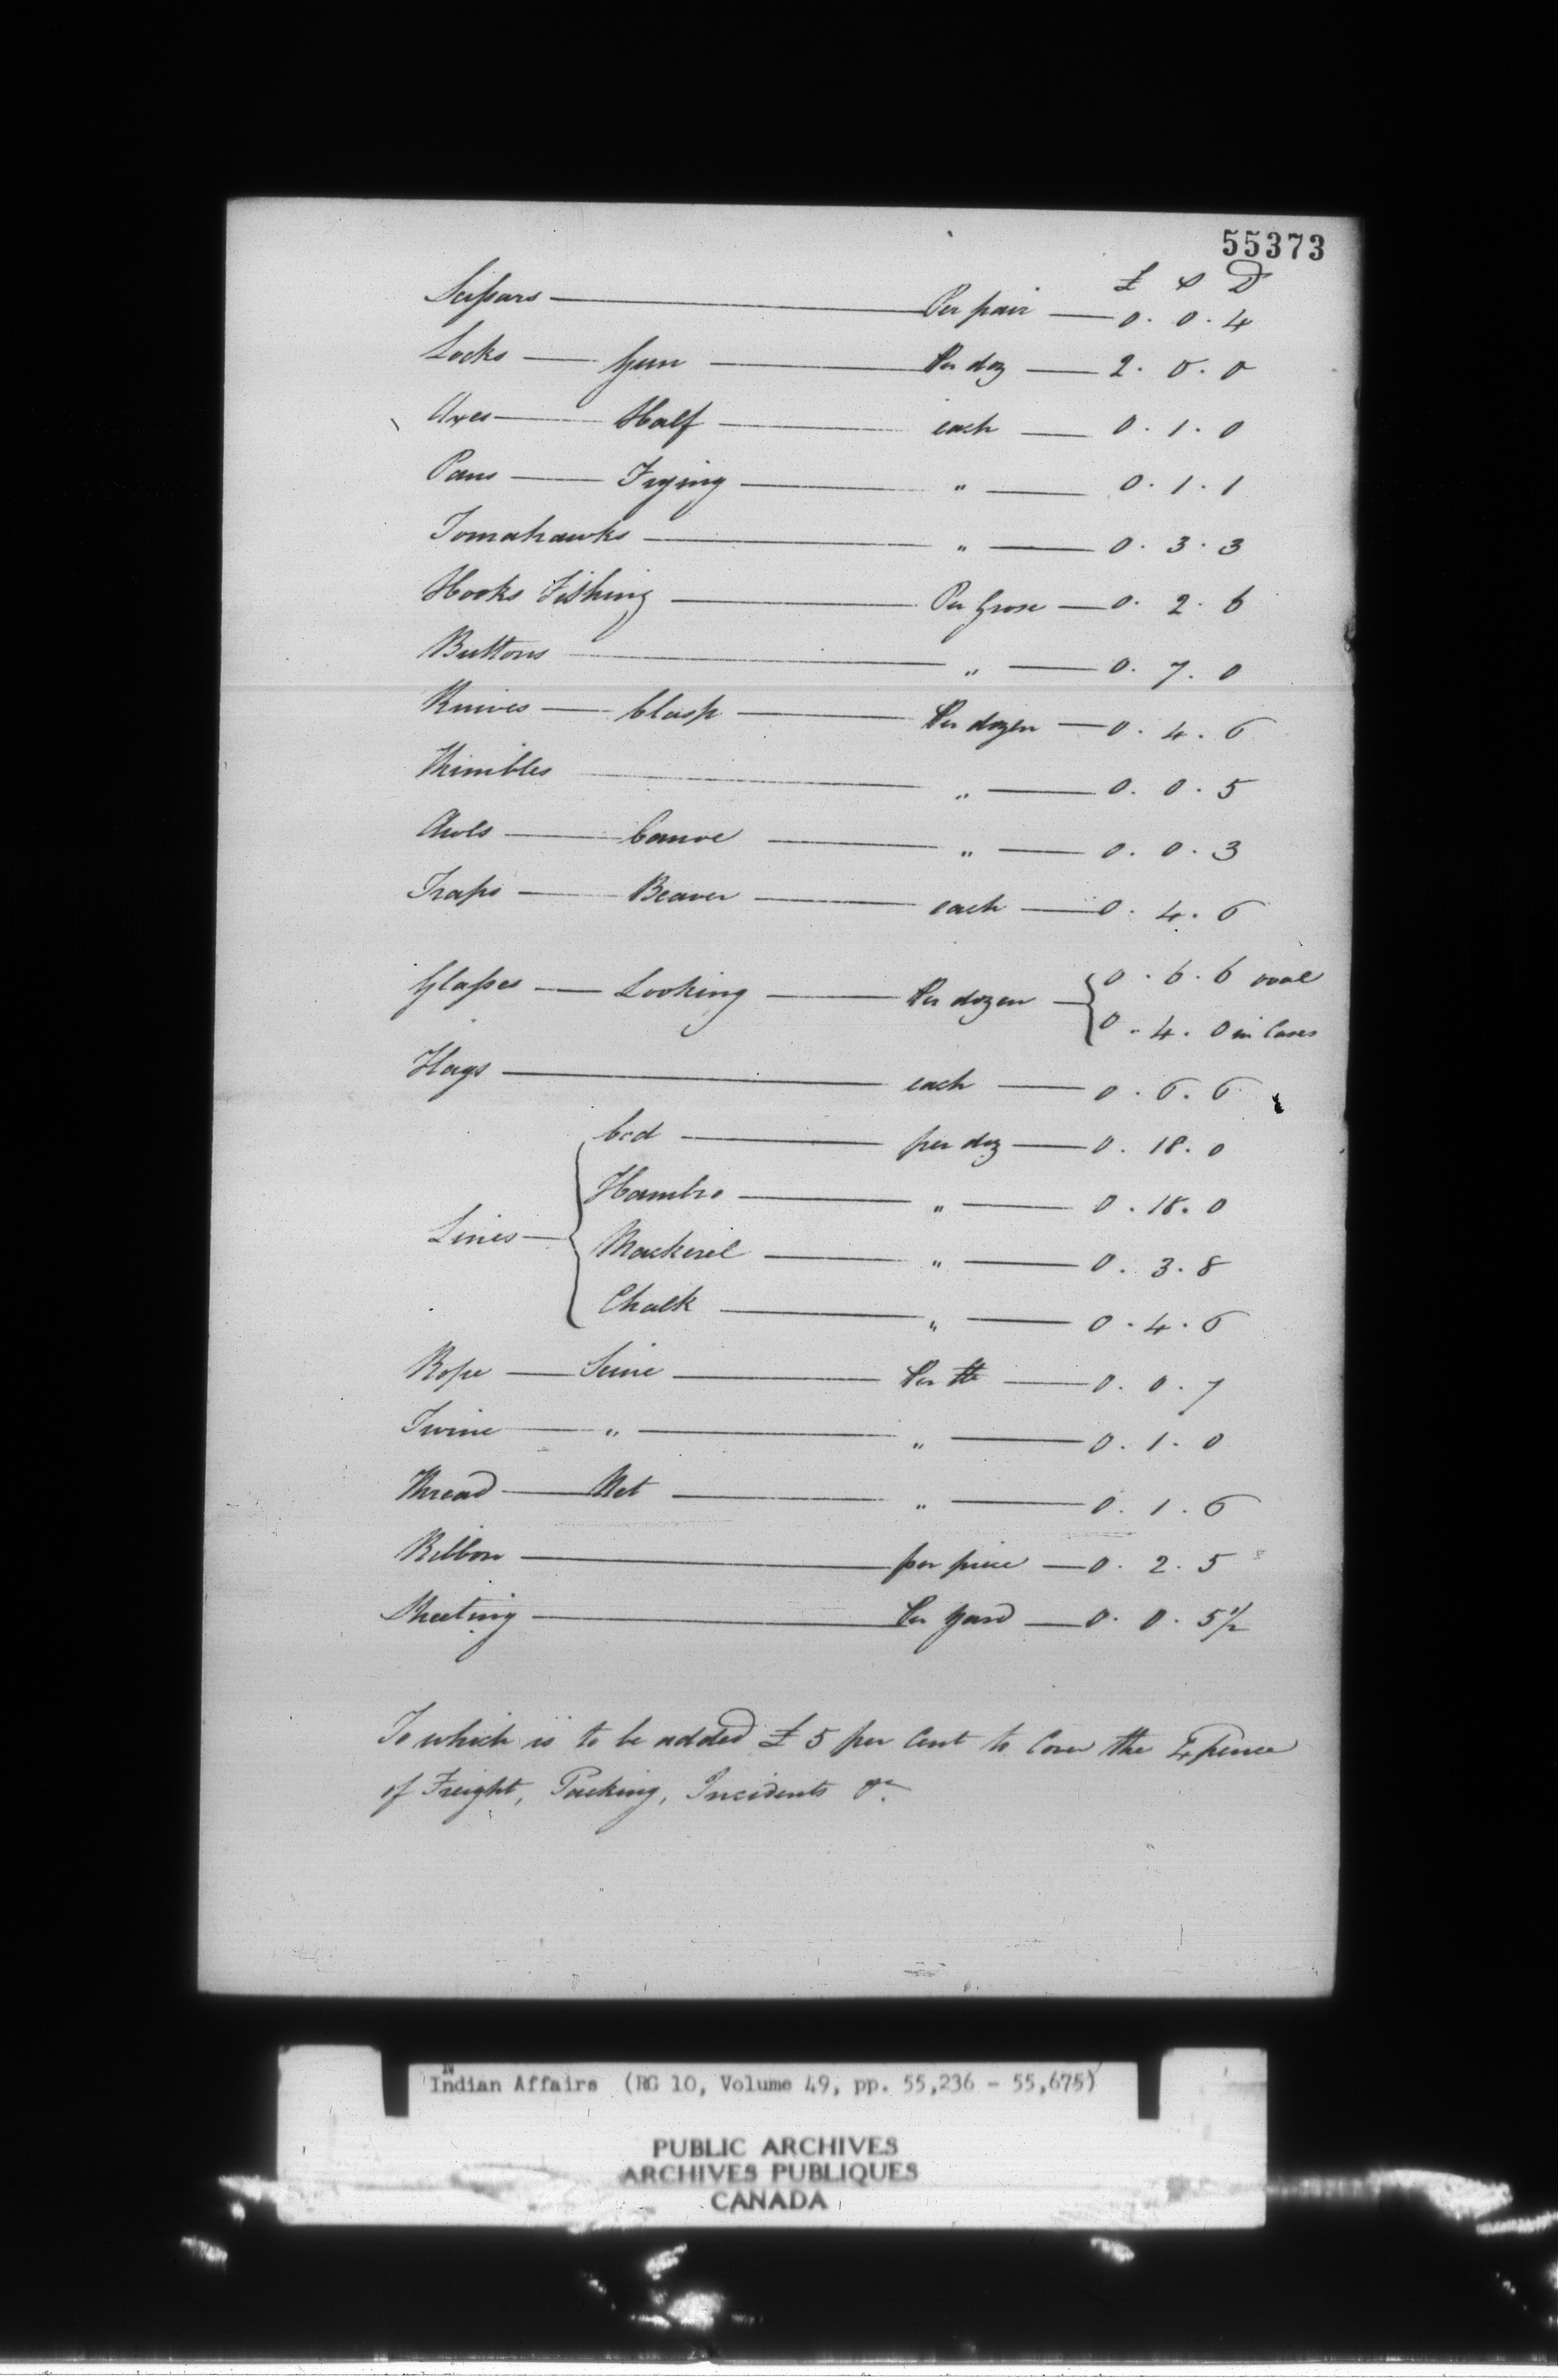 55373
£ s D
Scissars — Per pair — 0. 0. 4
Locks — Gun — Per doz — 2. 0. 0
Axes — Half — each — 0. 1. 0
Pans — Frying — " — 0. 1. 1
Tomahawks — " — 0. 3. 3
Hooks Fishing — Per Grose — 0. 2. 6
Buttons — " — 0. 7. 0
Knives — Clasp — Per dozen — 0. 4. 6
Thimbles — " — 0. 0. 5
Awls — Canoe — " — 0. 0. 3
Traps — Beaver — each — 0. 4. 6
Glasses — Looking — Per dozen — { 0. 6. 6 oval
0. 4. 0 in Cases
Flags — each — 0. 6. 6
Lines — { Cod — per doz — 0. 18. 0
Hambro — " — 0. 18. 0
Mackerel — " — 0. 3. 8
Chalk — " — 0. 4. 6
Rope — Seine — Per lb — 0. 0. 7
Twine — " — " — 0. 1. 0
Thread — Net — " — 0. 1. 6
Ribbon — per piece — 0. 2. 5
Sheeting — Per Yard — 0. 0. 5½
To which is to be added £5 per Cent to Cover the Expence
of Freight, Packing, Incidents &c.
Indian Affairs (RG 10, Volume 49, pp. 55,236 - 55,675)
PUBLIC ARCHIVES
ARCHIVES PUBLIQUES
CANADA